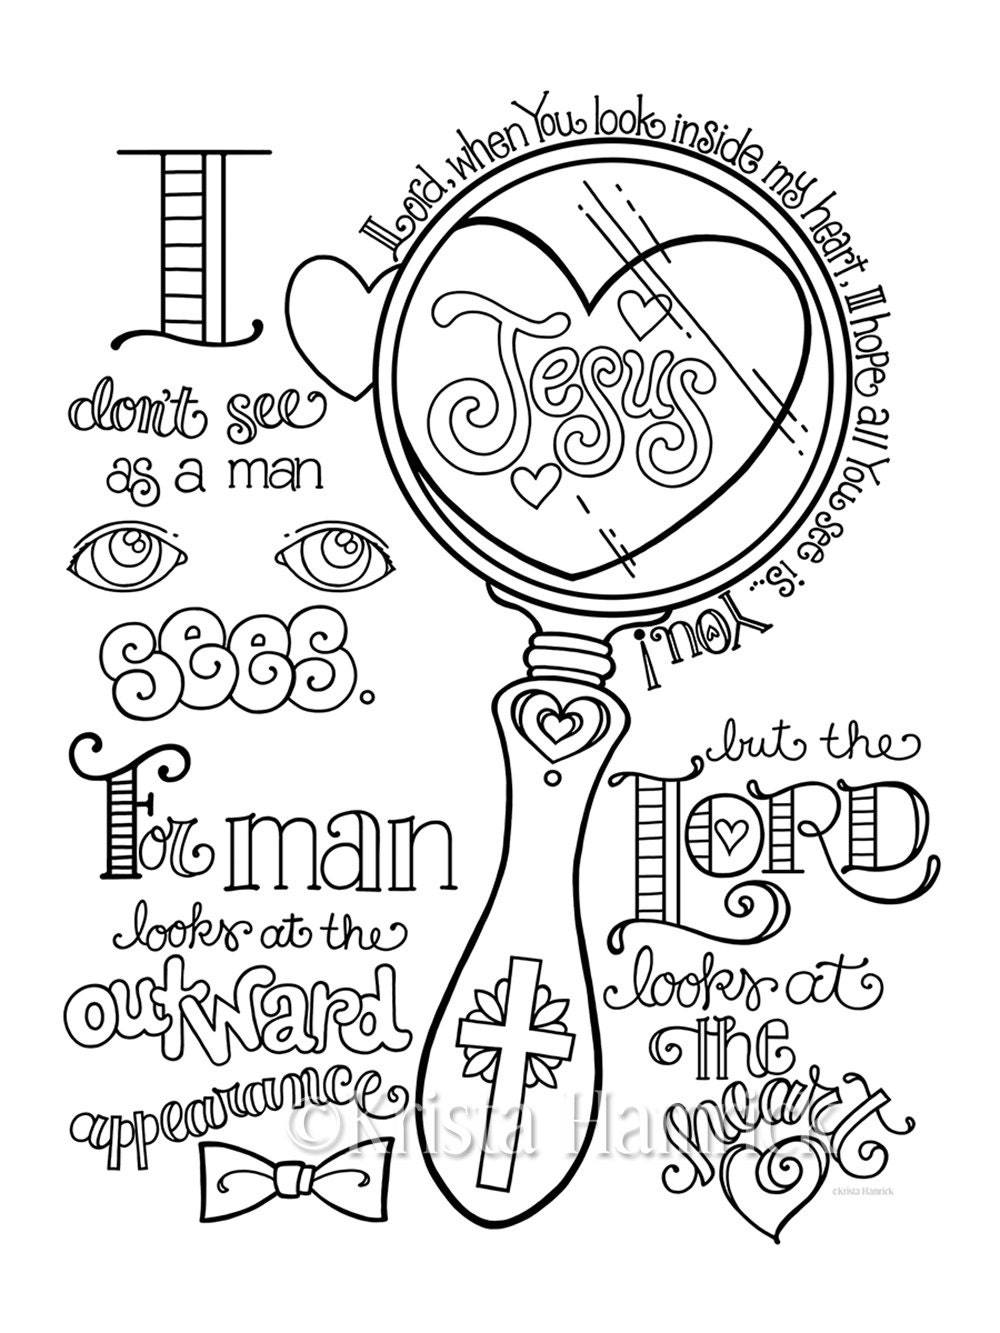 I
don't see
as a man
sees.
For man
looks at the
outward
appearance
but the
LORD
looks at
the
heart
Lord, when You look inside my heart, I hope all You see is...
You!
Jesus
©Krista Hamrick
©Krista Hamrick